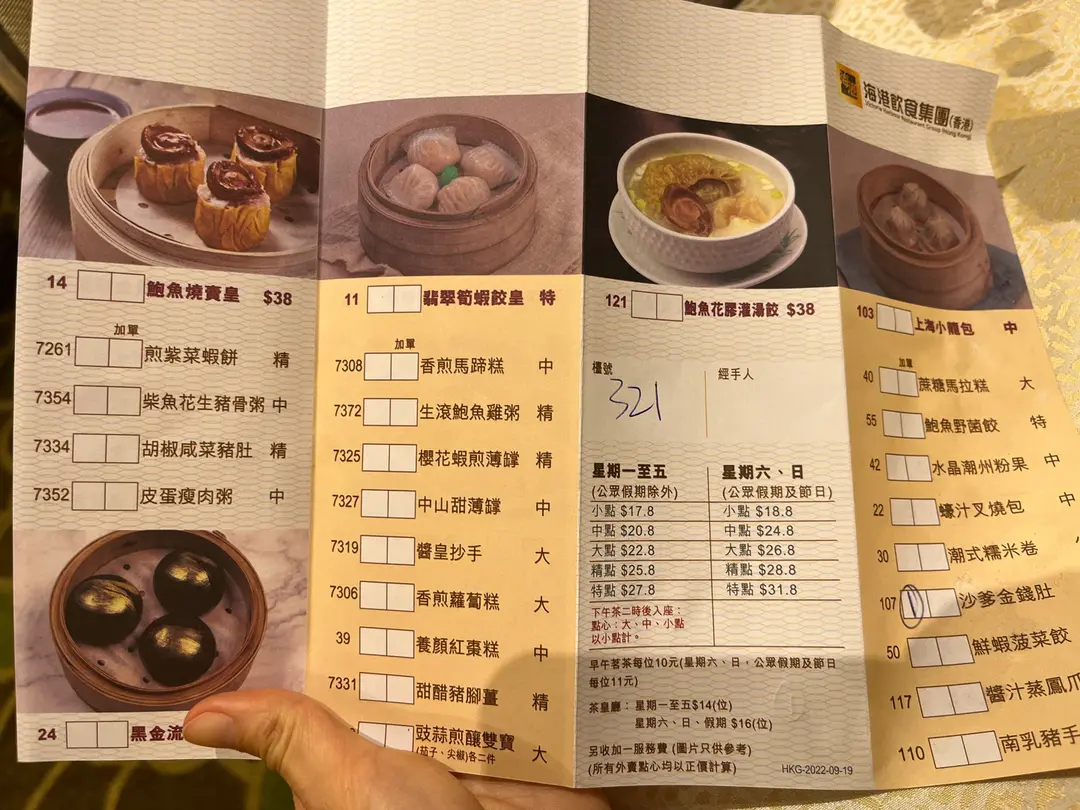 14 鮑魚燒賣皇 $38
加單
7261 煎紫菜蝦餅 精
7354 柴魚花生豬骨粥 中
7334 胡椒咸菜豬肚 精
7352 皮蛋瘦肉粥 中
24 黑金流
11 翡翠筍蝦餃皇 特
加單
7308 香煎馬蹄糕 中
7372 生滾鮑魚雞粥 精
7325 櫻花蝦煎薄罉 精
7327 中山甜薄罉 中
7319 醬皇抄手 大
7306 香煎蘿蔔糕 大
39 養顏紅棗糕 中
7331 甜醋豬腳薑 精
豉蒜煎釀雙寶 大
(茄子、尖椒)各二件
121 鮑魚花膠灌湯餃 $38
檯號
321
經手人
星期一至五
(公眾假期除外)
小點 $17.8
中點 $20.8
大點 $22.8
精點 $25.8
特點 $27.8
下午茶二時後入座：
點心：大、中、小點
以小點計。
星期六、日
(公眾假期及節日)
小點 $18.8
中點 $24.8
大點 $26.8
精點 $28.8
特點 $31.8
早午茗茶每位10元(星期六、日，公眾假期及節日
每位11元)
茶皇廳： 星期一至五$14(位)
星期六、日、假期 $16(位)
另收加一服務費 (圖片只供參考)
(所有外賣點心均以正價計算)
HKG-2022-09-19
海港飲食集團(香港)
Victoria Harbour Restaurant Group (Hong Kong)
103 上海小籠包 中
加單
40 蔗糖馬拉糕 大
55 鮑魚野菌餃 特
42 水晶潮州粉果 中
22 蠔汁叉燒包 中
30 潮式糯米卷
107 1 沙爹金錢肚
50 鮮蝦菠菜餃
117 醬汁蒸鳳爪
110 南乳豬手